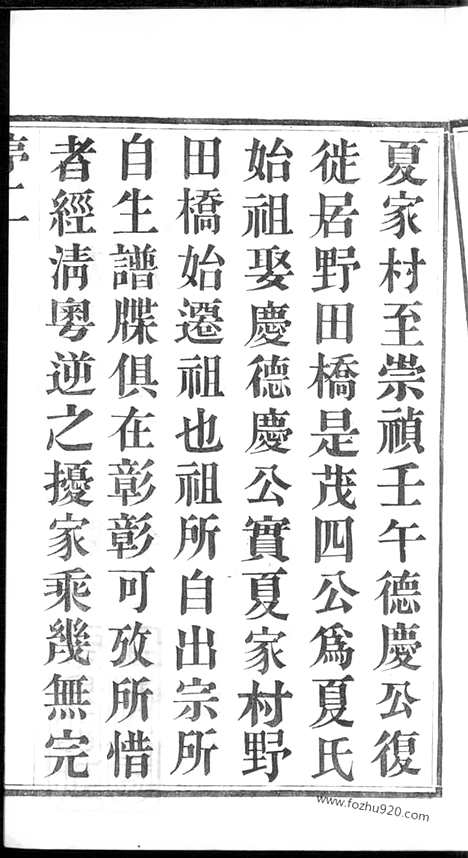 夏家村至崇禎壬午德慶公復
徙居野田橋是茂四公爲夏氏
始祖娶慶德慶公實夏家村野
田橋始遷祖也祖所自出宗所
自生譜牒俱在彰彰可攷所惜
者經淸粵逆之擾家乘幾無完
www.fozhu920.com